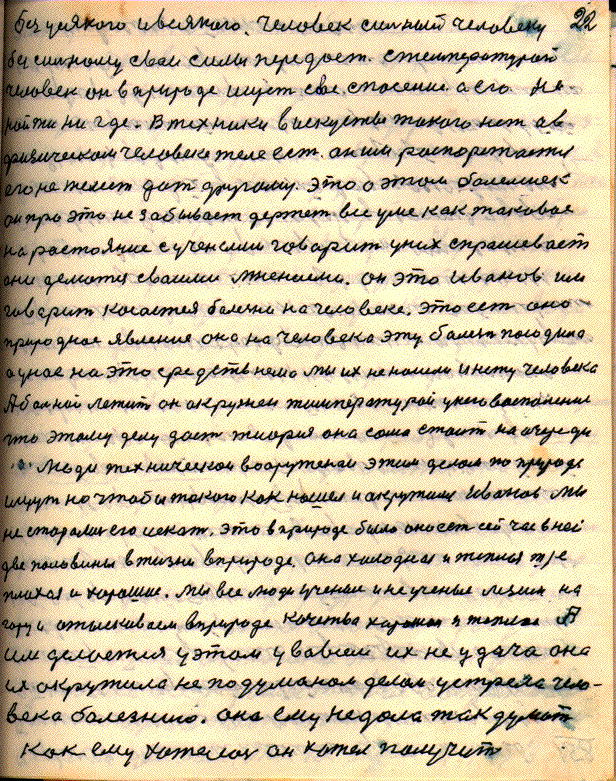 22
без всякого и всякого. Человек сильный человеку
без сильному свои силы передает. С температурой
человек он в природе ищет свое спасение а его не
найти ни где. В техники в искустве такого нет а в
физическом человека теле ест. он им распоряжается
его не может дат другому. Это о этом
он про это не забывает держет все уме как таковое
на растояние сучеными гаварит уних спрашевает
они делются сваими мнениеми. он это Иванов им
гаварит касается балезни на человеке. Это ест оно
природное явление она на человека эту балезн посадила
а унас на это средств нема мы их не нашли и нету человека
А балной лежит он акружен температурой унего васпаление
что этому делу дает тиория она сама стаит на очереди
Люди технической вооруженай этим делам по природе
ищут но чтобы такого как нашел и акружили Иванов мы
не старалис его искат. Это в природе было оно ест сейчас в ней
две половины в жизни в природе. Она холодная и теплая тоже
плахая и харошие. Мы все люди ученые и неученые лезим на
гору и отыскиваем в природе качества харошая и теплое А
им делается у этом увсем их не удача она
их окружила не подуманом делам устрела чело-
века балезнию. она ему недала так думат
как ему хателос он хател получит